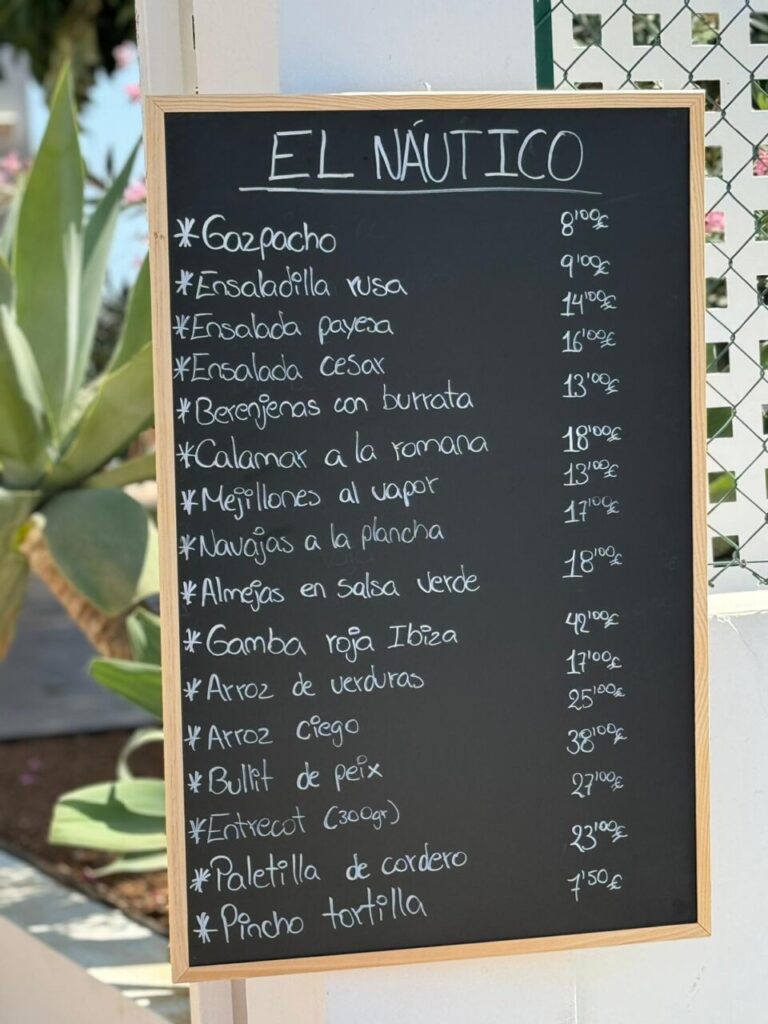 EL NÁUTICO
*Gazpacho 8'00€
*Ensaladilla rusa 9'00€
*Ensalada payesa 14'00€
*Ensalada cesar 16'00€
*Berenjenas con burrata 13'00€
*Calamar a la romana 18'00€
*Mejillones al vapor 13'00€
*Navajas a la plancha 17'00€
*Almejas en salsa verde 18'00€
*Gamba roja Ibiza 42'00€
*Arroz de verduras 17'00€
*Arroz ciego 25'00€
*Bullit de peix 38'00€
*Entrecot (300gr) 27'00€
*Paletilla de cordero 23'00€
*Pincho tortilla 7'50€